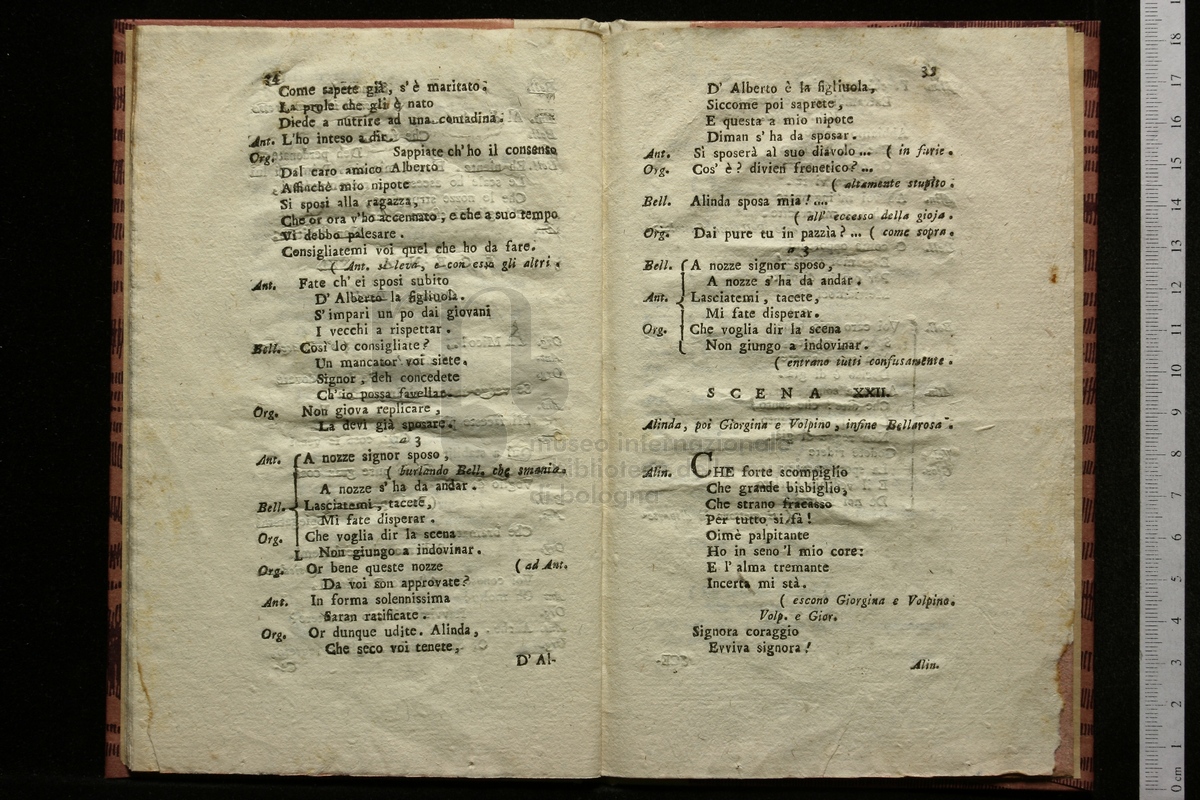 34
Come sapete già, s'è maritato:
La prole che gli è nato
Diede a nutrire ad una contadina.
Ant. L'ho inteso a dir.
Org. Sappiate ch'ho il consenso
Dal caro amico Alberto
Affinchè mio nipote
Si sposi alla ragazza,
Che or ora v'ho accennato, e che a suo tempo
Vi debbo palesare.
Consigliatemi voi quel che ho da fare.
( Ant. si leva, e con esso gli altri.
Ant. Fate ch' ei sposi subito
D' Alberto la figliuola.
S'impari un po dai giovani
I vecchi a rispettar.
Bell. Così lo consigliate?
Un mancator voi siete.
Signor, deh concedete
Ch'io possa favellar.
Org. Non giova replicare,
La devi già sposare.
a 3
Ant. A nozze signor sposo,
( burlando Bell. che smania.
A nozze s' ha da andar.
Bell. Lasciatemi, tacete,
Mi fate disperar.
Org. Che voglia dir la scena
Non giungo a indovinar.
Org. Or bene queste nozze ( ad Ant.
Da voi son approvate?
Ant. In forma solennissima
Saran ratificate.
Org. Or dunque udite. Alinda,
Che seco voi tenete,
D' Al-
35
D' Alberto è la figliuola,
Siccome poi saprete,
E questa a mio nipote
Diman s' ha da sposar.
Ant. Si sposerà al suo diavolo... ( in furie.
Org. Cos' è? divien frenetico?...
( altamente stupito.
Bell. Alinda sposa mia!....
( all' eccesso della gioja.
Org. Dai pure tu in pazzìa?... ( come sopra.
a 3
Bell. A nozze signor sposo,
A nozze s'ha da andar.
Ant. Lasciatemi, tacete,
Mi fate disperar.
Org. Che voglia dir la scena
Non giungo a indovinar.
( entrano tutti confusamente.
SCENA XXII.
Alinda, poi Giorgina e Volpino, infine Bellarosa.
Alin. CHE forte scompiglio
Che grande bisbiglio,
Che strano fracasso
Per tutto si fà!
Oimè palpitante
Ho in seno 'l mio core:
E l' alma tremante
Incerta mi stà.
( escono Giorgina e Volpino.
Volp. e Gior.
Signora coraggio
Evviva signora!
Alin.
museo internazionale
biblioteca de
di bologna
0 cm 1 2 3 4 5 6 7 8 9 10 11 12 13 14 15 16 17 18